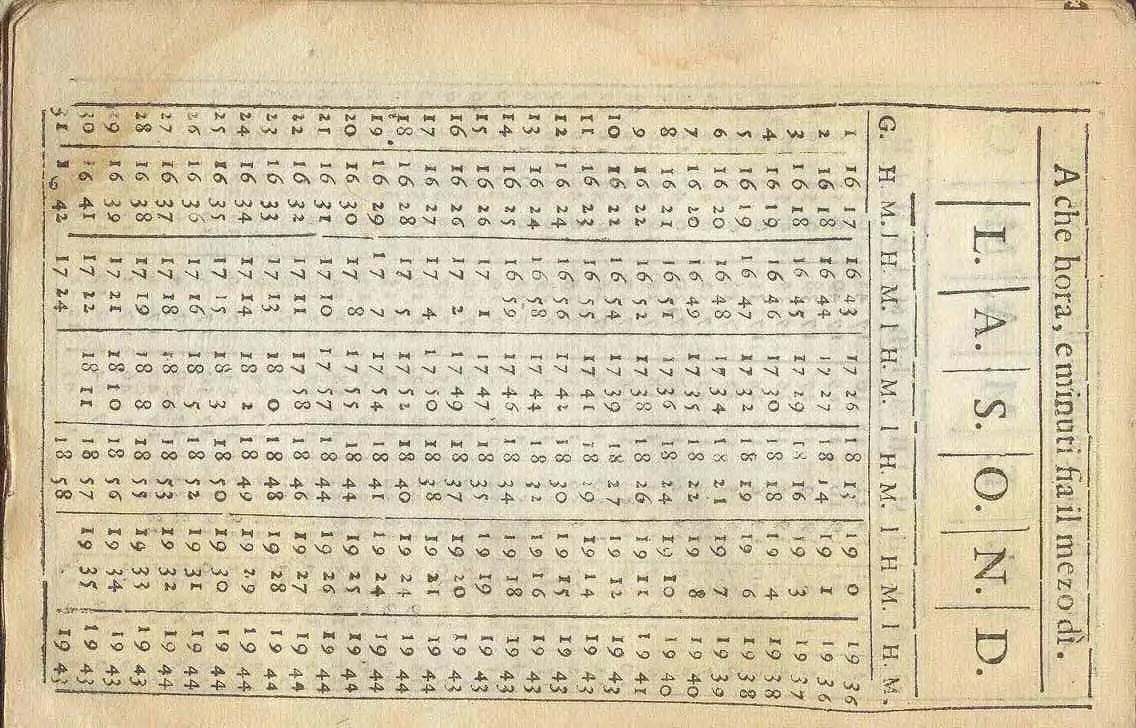 A che hora, e minuti fia il mezo dì.
L. A. S. O. N. D.
G. H. M. | H. M. | H. M. | H. M. | H M. | H. M.
1 16 17 16 43 17 26 18 13 19 0 19 36
2 16 18 16 44 17 27 18 14 19 1 19 36
3 16 18 16 45 17 29 18 16 19 3 19 37
4 16 19 16 46 17 30 18 18 19 4 19 38
5 16 19 16 47 17 32 18 19 19 6 19 38
6 16 20 16 48 17 34 18 21 19 7 19 39
7 16 20 16 49 17 35 18 22 19 8 19 40
8 16 21 16 51 17 36 18 24 19 10 19 40
9 16 22 16 52 17 38 18 26 19 11 19 41
10 16 22 16 54 17 39 18 27 19 12 19 43
11 16 23 16 55 17 41 18 29 19 14 19 43
12 16 24 16 56 17 42 18 30 19 15 19 43
13 16 24 16 58 17 44 18 32 19 16 19 43
14 16 25 16 59 17 46 18 34 19 18 19 43
15 16 26 17 1 17 47 18 35 19 19 19 43
16 16 26 17 2 17 49 18 37 19 20 19 43
17 16 27 17 4 17 50 18 38 19 21 19 44
18 16 28 17 5 17 52 18 40 19 24 19 44
19 16 29 17 7 17 54 18 41 19 24 19 44
20 16 30 17 8 17 55 18 44 19 25 19 44
21 16 31 17 10 17 57 18 44 19 26 19 44
22 16 32 17 11 17 58 18 46 19 27 19 44
23 16 33 17 13 18 0 18 48 19 28 19 44
24 16 34 17 14 18 2 18 49 19 29 19 44
25 16 35 17 15 18 3 18 50 19 30 19 44
26 16 36 17 16 18 5 18 52 19 31 19 44
27 16 37 17 18 18 6 18 53 19 32 19 44
28 16 38 17 19 18 8 18 55 19 33 19 43
29 16 39 17 21 18 10 18 56 19 34 19 43
30 16 41 17 22 18 11 18 57 19 35 19 43
31 16 42 17 24 18 58 19 43